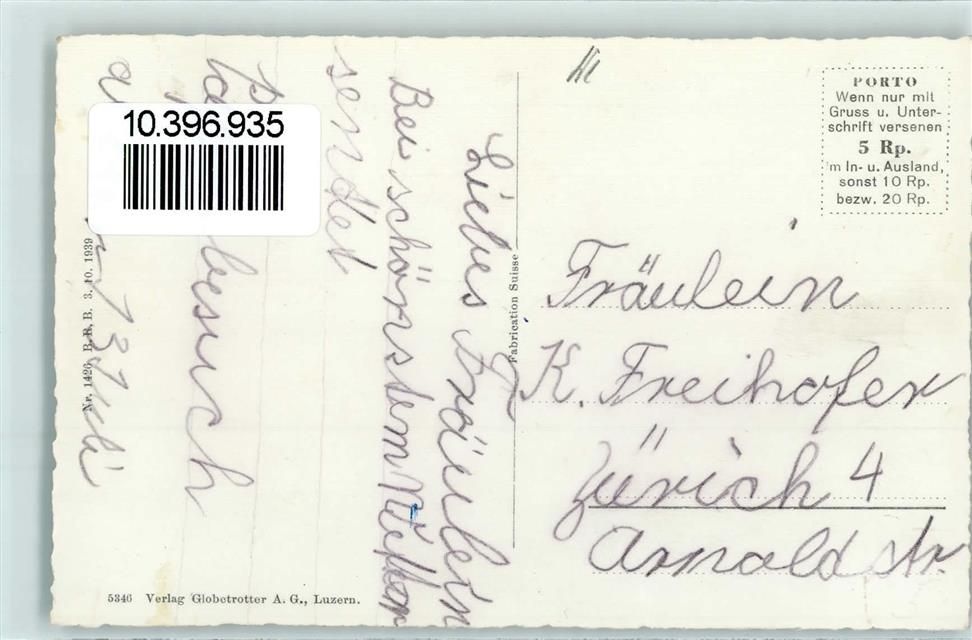 10.396.935
PORTO
Wenn nur mit
Gruss u. Unter-
schrift versenen
5 Rp.
'm In- u. Ausland,
sonst 10 Rp.
bezw. 20 Rp.
Liebes Fräulein
Bei schönstem Wetter
sendet
besuch
13 Juli
Fräulein
K. Freihofer
Zürich 4
Arnold str.
Fabrication Suisse
Nr. 1426 B.R.B. 3. 10. 1939
5346 Verlag Globetrotter A. G., Luzern.